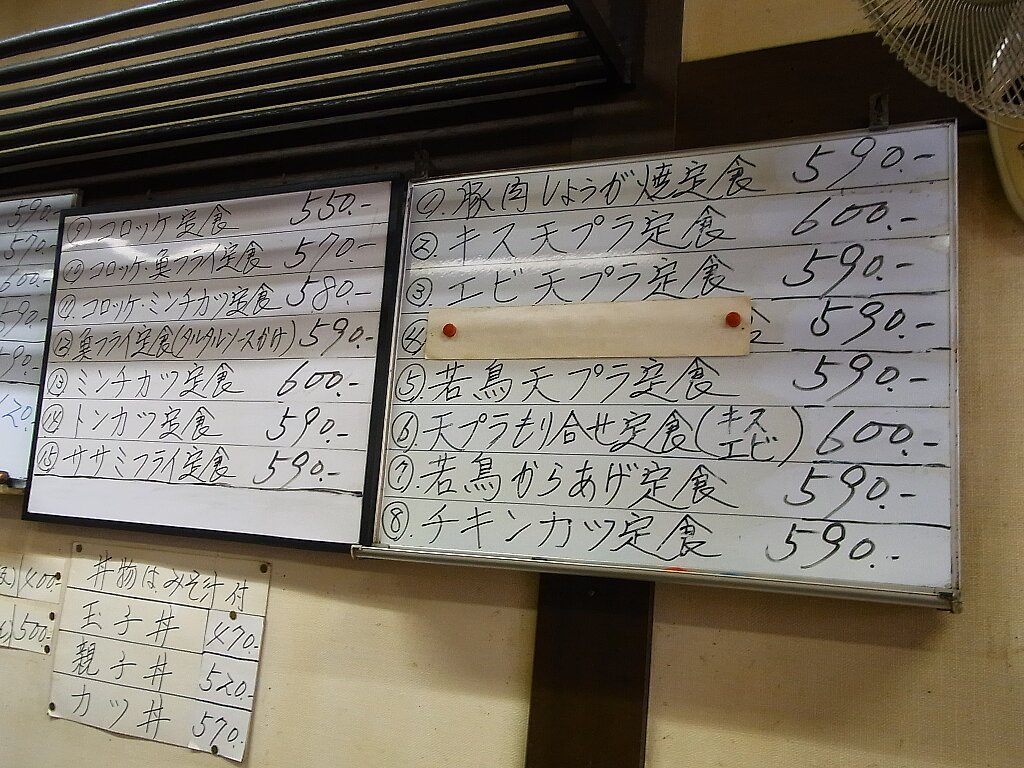 ①豚肉しょうが焼定食 590.-
②キス天プラ定食 600.-
③エビ天プラ定食 590.-
④ 590.-
⑤若鳥天プラ定食 590.-
⑥天プラもり合せ定食(キスエビ) 600.-
⑦若鳥からあげ定食 590.-
⑧チキンカツ定食 590.-
⑨コロッケ定食 550.-
⑩コロッケ・魚フライ定食 570.-
⑪コロッケ・ミンチカツ定食 580.-
⑫魚フライ定食(タルタルソースかけ) 590.-
⑬ミンチカツ定食 600.-
⑭トンカツ定食 590.-
⑮ササミフライ定食 590.-
590.-
570.-
600.-
590.-
590.-
丼物はみそ汁付
玉子丼 470.-
親子丼 520.-
カツ丼 570.-
400.-
500.-